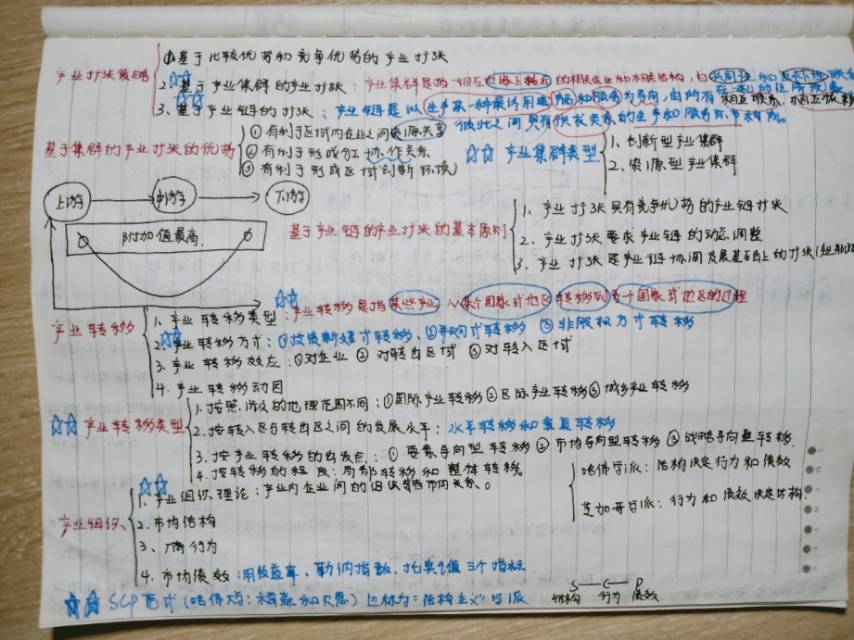 产业扩张策略
①基于比较优势和竞争优势的产业扩张
2、基于产业集群的产业扩张：产业集群是指一组在地理上靠近的相关企业和相关结构，由共同性和互补性联系在一起
3、基于产业链的扩张：产业链是以生产某一种最终用途产品和服务为导向，由所有相互联系、相互依赖
彼此之间具有供求关系的生产和服务环节构成。
基于集群的产业扩张的优势
①有利于区域内企业之间资源共享
②有利于形成分工协作关系
③有利于形成区域创新环境
产业集群类型
1、创新型产业集群
2、资源型产业集群
上游 中游 下游
附加值最高
基于产业链的产业扩张的基本原则
1、产业扩张具有竞争优势的产业链扩张
2、产业扩张要求产业链的动态调整
3、产业扩张是产业链协同发展基础上的扩张
产业转移是指某些产业从某个国家或地区转移到另一个国家或地区的过程
产业转移
1、产业转移类型：
2、产业转移方式：①投资新建式转移、②并购式转移 ③非股权方式转移
3、产业转移效应：①对企业 ②对转出区域 ③对转入区域
4、产业转移动因
产业转移类型
1、按照涉及的地理范围不同：①国际产业转移②区际产业转移③城乡产业转移
2、按转入区与转出区之间的发展水平：水平转移和垂直转移
3、按产业转移的出发点：①要素导向型转移②市场导向型转移③战略导向型转移.
4、按转移的程度：局部转移和整体转移。
哈佛学派：结构决定行为和绩效
芝加哥学派：行为和绩效决定结构.
产业组织
1、产业组织理论：产业内企业间的组织或者市场关系。
2、市场结构
3、厂商行为
4、市场绩效：用收益率、勒纳指数、托宾q值三个指标
S—C—P
结构 行为 绩效
SCP范式（哈佛大学：梅森和贝恩）也称为：结构主义学派